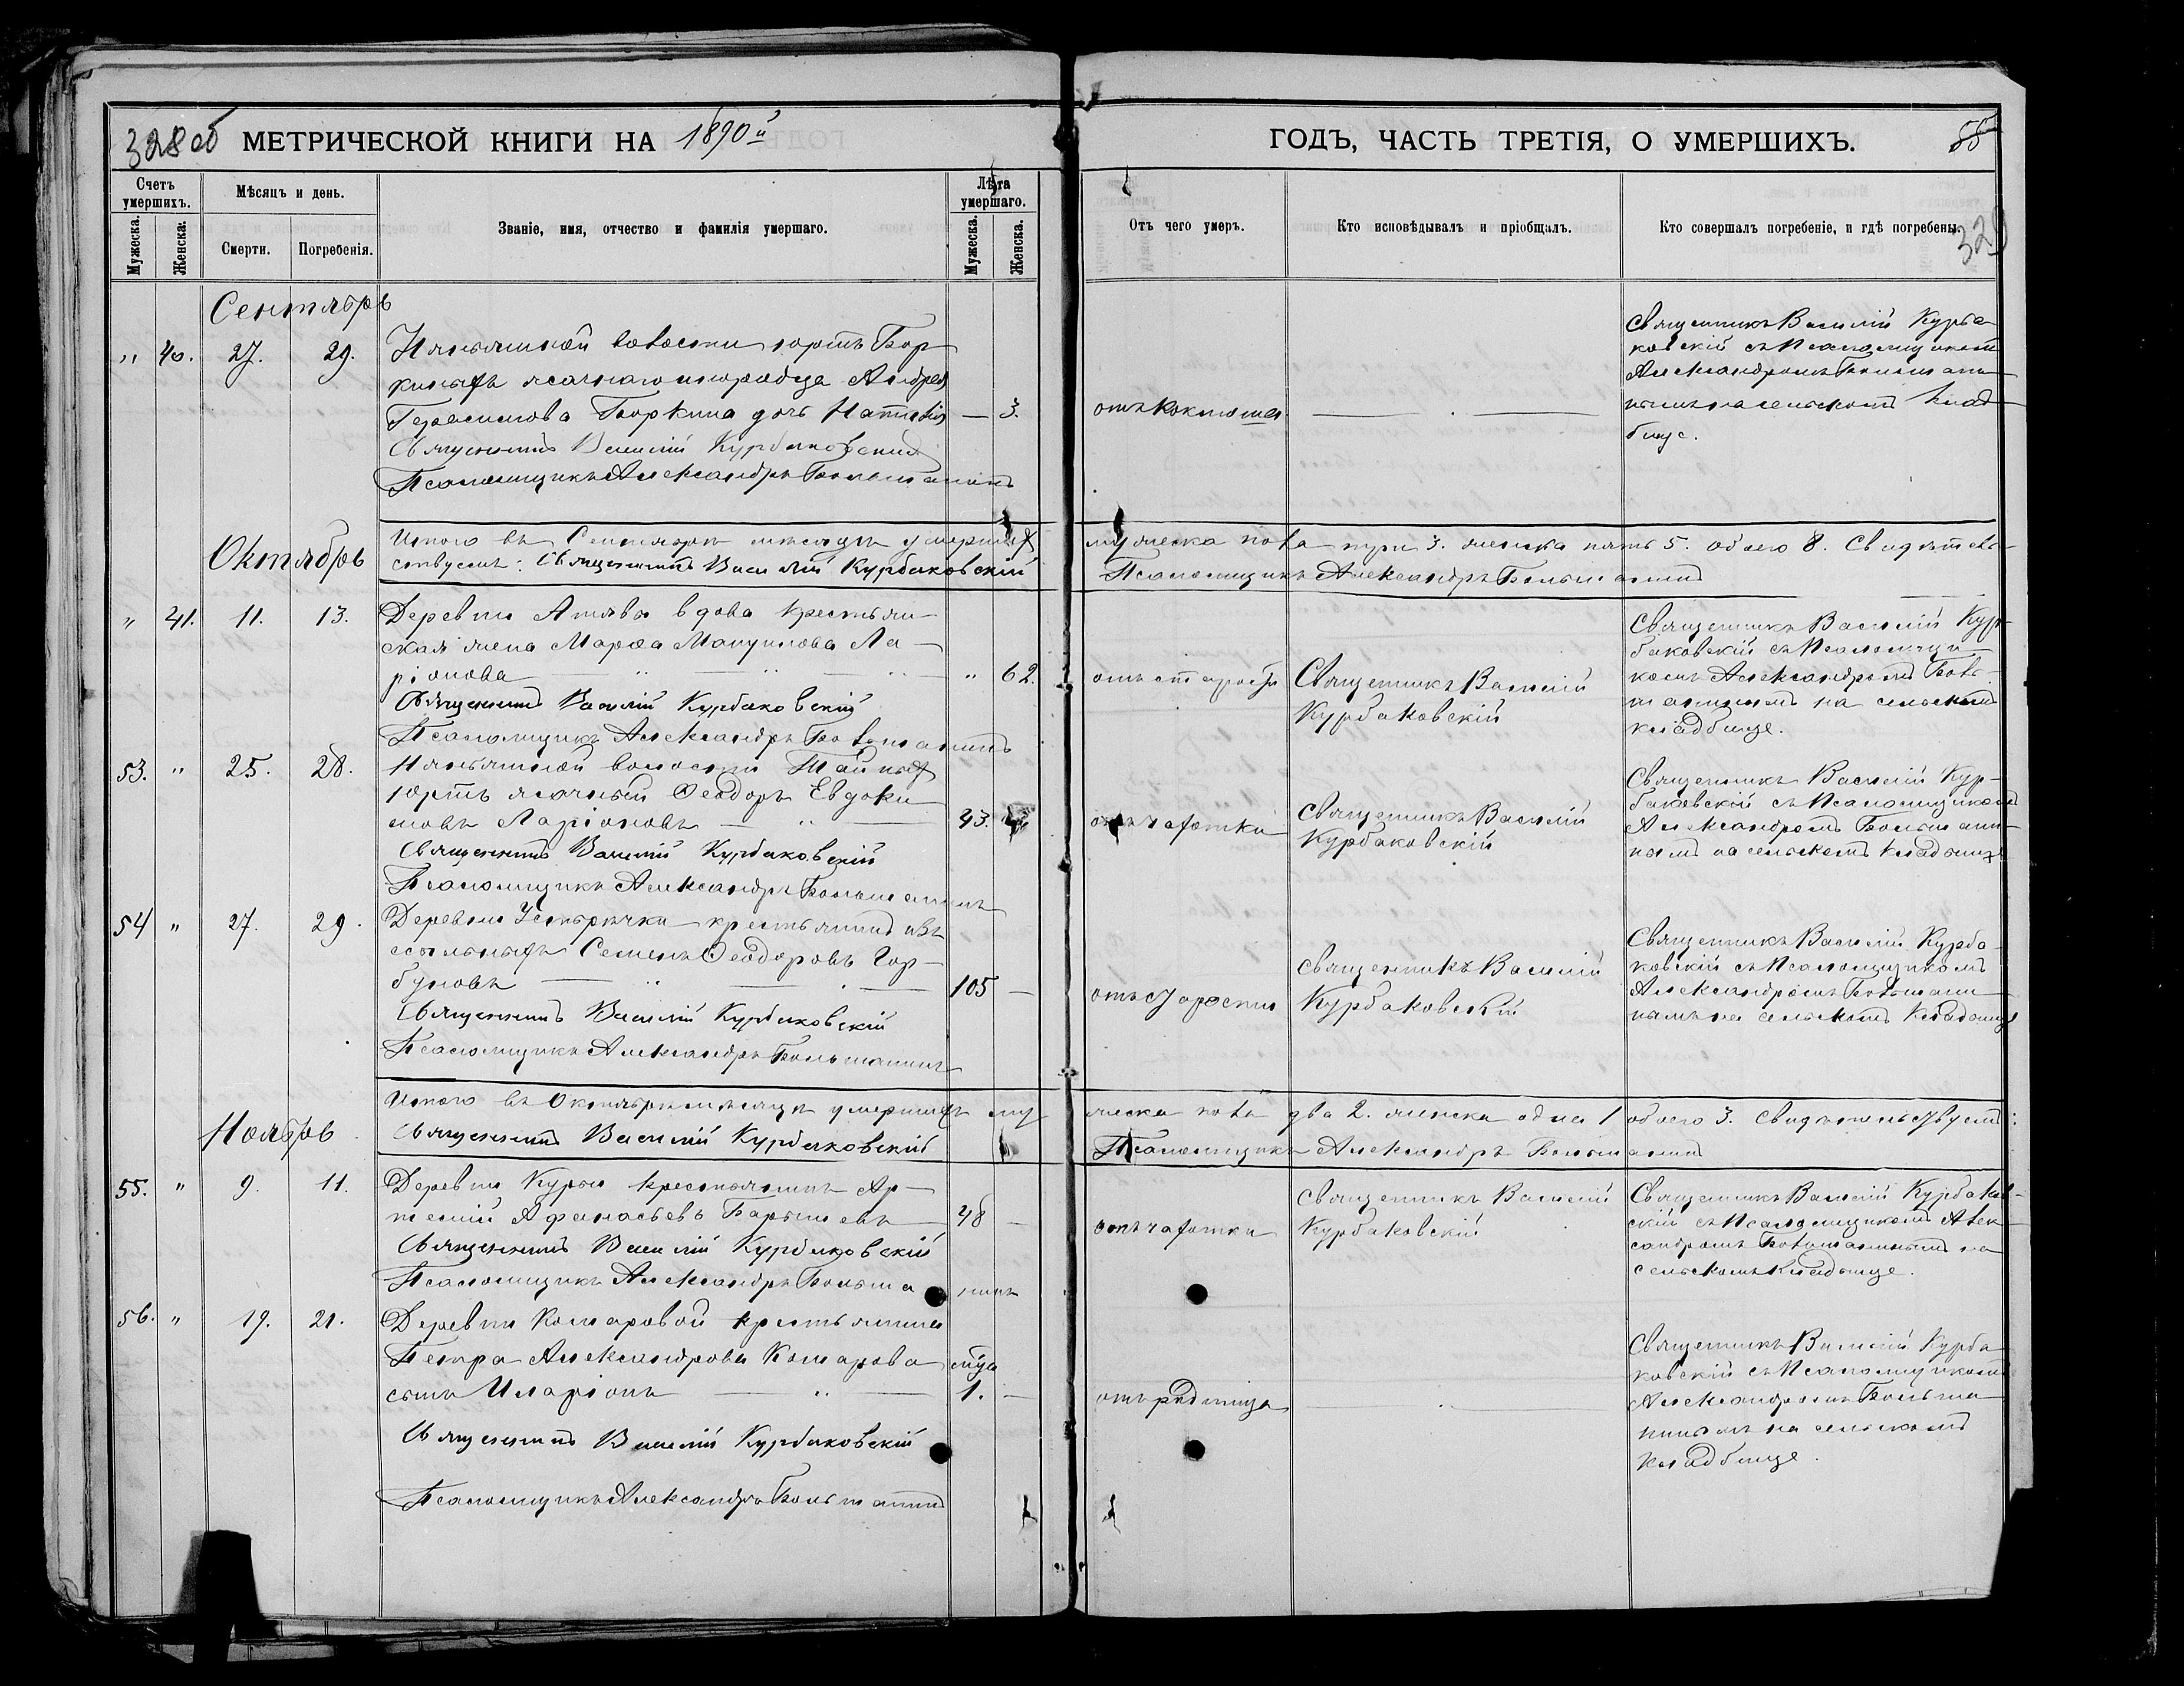 328 об МЕТРИЧЕСКОЙ КНИГИ НА 1890й
ГОДЪ, ЧАСТЬ ТРЕТІЯ, О УМЕРШИХЪ. 55
329
Счетъ умершихъ. Мѣсяцъ и день. Званіе, имя, отчество и фамилія умершаго. Лѣта умершаго.
Мужеска. Женска. Смерти. Погребенія. Мужеска. Женска.
Отъ чего умеръ. Кто исповѣдывалъ и пріобщалъ. Кто совершалъ погребеніе, и гдѣ погребены.
Сентябрь
" 40. 27. 29.
волости юртъ Бор-
киныхъ ясачнаго инородца Андрея
Герасимова Боркина дочь — 3.
Священникъ Василій Курбаковскій
Псаломщикъ Александръ Большанинъ
отъ коклюша
Священникъ Василій Курба-
ковскій съ Псаломщикомъ
Александромъ Большани-
нымъ на сельскомъ клад-
бище.
Октябрь
Итого въ Сентябрѣ мѣсяцѣ умершихъ мужеска пола три 3. женска пять 5. обоего 8. Свидѣтель-
ствуемъ: Священникъ Василій Курбаковскій Псаломщикъ Александръ Большанинъ
" 41. 11. 13.
Деревни вдова крестьян-
ская жена Марѳа Ла-
ріонова " 62.
Священникъ Василій Курбаковскій
Псаломщикъ Александръ Большанинъ
отъ старости
Священникъ Василій
Курбаковскій
Священникъ Василій Кур-
баковскій съ Псаломщи-
комъ Александромъ Боль-
шанинымъ на сельскомъ
кладбище.
53. " 25. 28.
волости
юртъ ясачный Ѳеодоръ Евдоки-
мовъ Ларіоновъ 43.
Священникъ Василій Курбаковскій
Псаломщикъ Александръ Большанинъ
отъ чахотки
Священникъ Василій
Курбаковскій
Священникъ Василій Кур-
баковскій съ Псаломщикомъ
Александромъ Большани-
нымъ на сельскомъ кладбище
54 " 27. 29.
Деревни Устьрѣчки крестьянинъ изъ
ссыльныхъ Семенъ Ѳеодоровъ Гор-
буновъ 105 —
Священникъ Василій Курбаковскій
Псаломщикъ Александръ Большанинъ
отъ старости
Священникъ Василій
Курбаковскій
Священникъ Василій Курба-
ковскій съ Псаломщикомъ
Александромъ Большани-
нымъ на сельскомъ кладбище
Ноябрь
Итого въ Октябрѣ мѣсяцѣ умершихъ мужеска пола два 2. женска одна 1 обоего 3. Свидѣтельствуемъ:
Священникъ Василій Курбаковскій Псаломщикъ Александръ Большанинъ
55. " 9. 11.
Деревни Курьи крестьянинъ Ар-
темій Афанасьевъ Барышевъ 48 —
Священникъ Василій Курбаковскій
Псаломщикъ Александръ Большанинъ
отъ чахотки
Священникъ Василій
Курбаковскій
Священникъ Василій Курбаков-
скій съ Псаломщикомъ Алек-
сандромъ Большанинымъ на
сельскомъ кладбище.
56. " 19. 21.
Деревни Комаровой крестьянина
Петра Александрова Комарова
сынъ Иларіонъ 1. —
Священникъ Василій Курбаковскій
Псаломщикъ Александръ Большанинъ
отъ родимца
Священникъ Василій Курба-
ковскій съ Псаломщикомъ
Александромъ Большани-
нымъ на сельскомъ
кладбище.